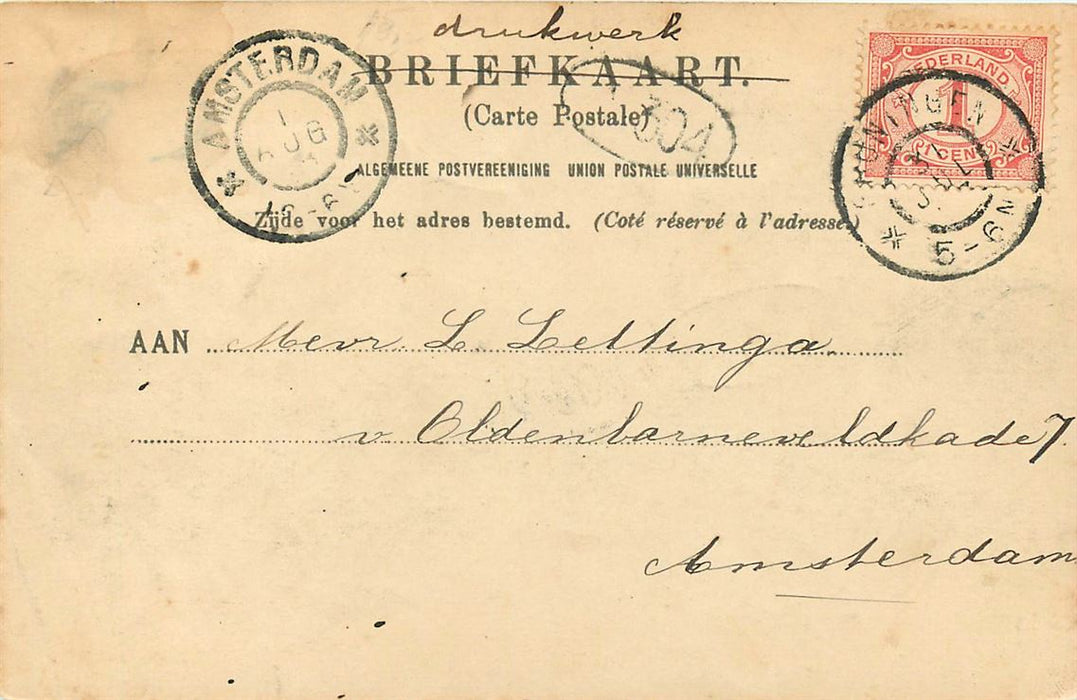 drukwerk
BRIEFKAART.
(Carte Postale)
ALGEMEENE POSTVEREENIGING UNION POSTALE UNIVERSELLE
Zijde voor het adres bestemd. (Coté réservé à l'adresse
AMSTERDAM
1
304
NEDERLAND
1
CENT
GRONINGEN
5-6N
AAN Mevr. L. Lettinga.
v Oldenbarneveldkade 7
Amsterdam